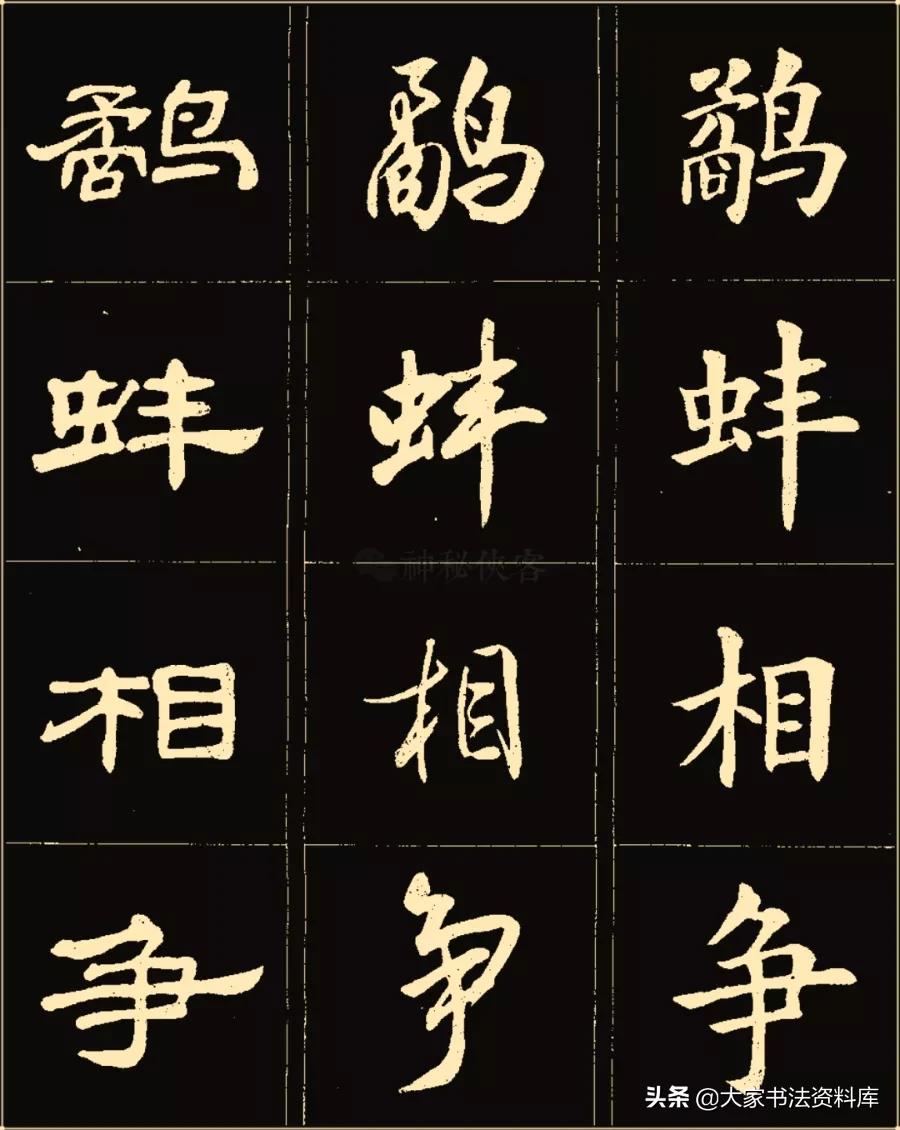 鹬 鹬 鹬
蚌 蚌 蚌
相 相 相
争 争 争
神秘侠客
头条 @大家书法资料库